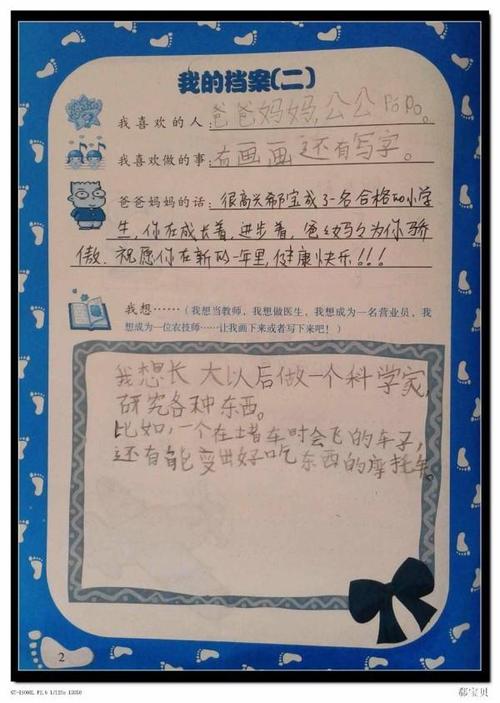 我的档案(二)
我喜欢的人：爸爸妈妈，公公pópo。
我喜欢做的事：有画画还有写字。
爸爸妈妈的话：很高兴郗宝成了一名合格的小学
生，你在成长着，进步着，爸爸妈妈为你骄
傲．祝愿你在新的一年里，健康快乐！！！
我想……（我想当教师，我想做医生，我想成为一名营业员，我
想成为一位农技师……让我画下来或者写下来吧！）
我想长大以后做一个科学家，
研究各种东西。
比如，一个在堵车时会飞的车子，
还有能变出好吃东西的摩托车。
2
GT-I9008L F2.6 1/125s ISO50
郗宝贝